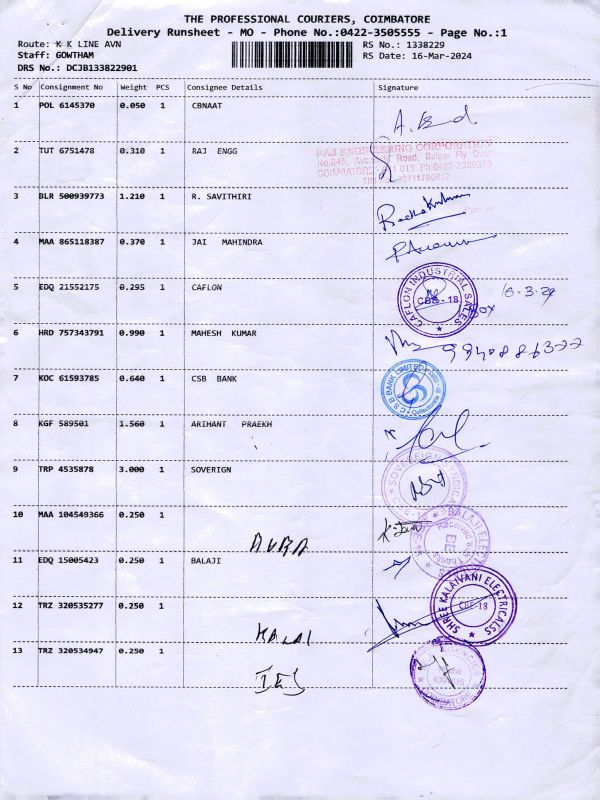 THE PROFESSIONAL COURIERS, COIMBATORE
Delivery Runsheet - MO - Phone No.:0422-3505555 - Page No.:1
Route: K K LINE AVN
RS No.: 1338229
Staff: GOWTHAM
RS Date: 16-Mar-2024
DRS No.: DCJB133822901
S No Consignment No Weight PCS Consignee Details Signature
1 POL 6145370 0.050 1 CBNAAT
2 TUT 6751478 0.310 1 RAJ ENGG
RAJ ENGINEERING CORPORATION
Road, Below Fly Over
3 BLR 500939773 1.210 1 R. SAVITHIRI
4 MAA 865118387 0.370 1 JAI MAHINDRA
5 EDQ 21552175 0.295 1 CAFLON
CAFLON INDUSTRIAL SALES
CBE-18
6 HRD 757343791 0.990 1 MAHESH KUMAR
9940886322
7 KOC 61593785 0.640 1 CSB BANK
CSB BANK LIMITED
8 KGF 589501 1.560 1 ARIHANT PRAEKH
9 TRP 4535878 3.000 1 SOVERIGN
10 MAA 104549366 0.250 1
AURA
BALAJI ELEC
Received with Thanks
11 EDQ 15005423 0.250 1 BALAJI
12 TRZ 320535277 0.250 1
KALAI
SHREE KALAIVANI ELECTRICALSS
CBE-18
13 TRZ 320534947 0.250 1
IES
COIMBATORE